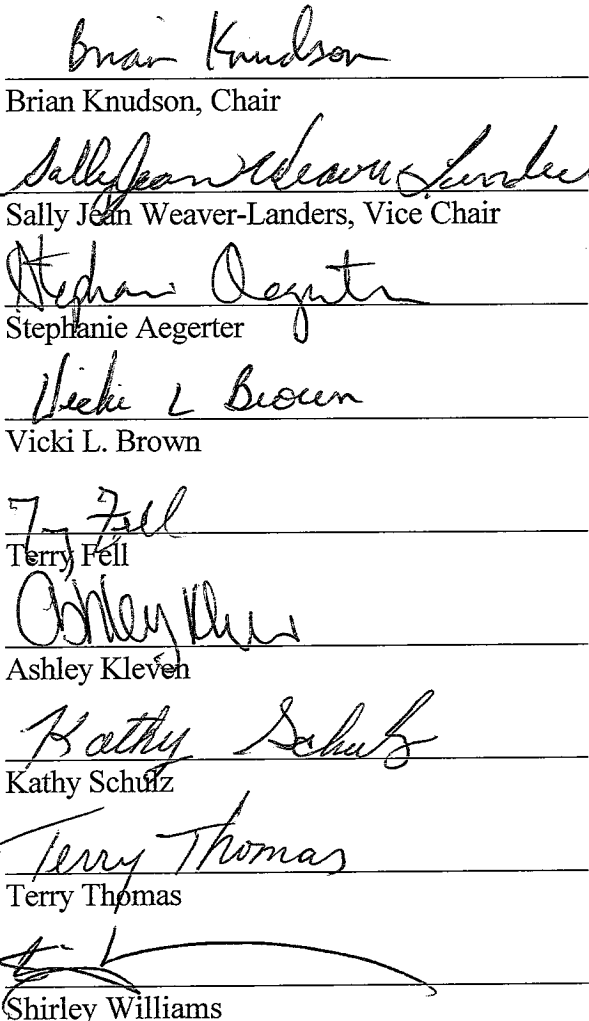 Brian Knudson
Brian Knudson, Chair
Sally Jean Weaver-Landers
Sally Jean Weaver-Landers, Vice Chair
Stephanie Aegerter
Stephanie Aegerter
Vicki L Brown
Vicki L. Brown
Terry Fell
Terry Fell
Ashley
Ashley Kleven
Kathy Schulz
Kathy Schulz
Terry Thomas
Terry Thomas
Shirley Williams